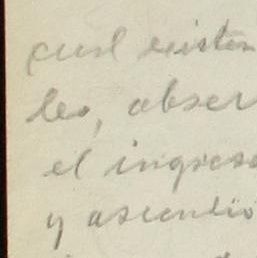 cual existen
les, obser
el ingreso
y ascendió